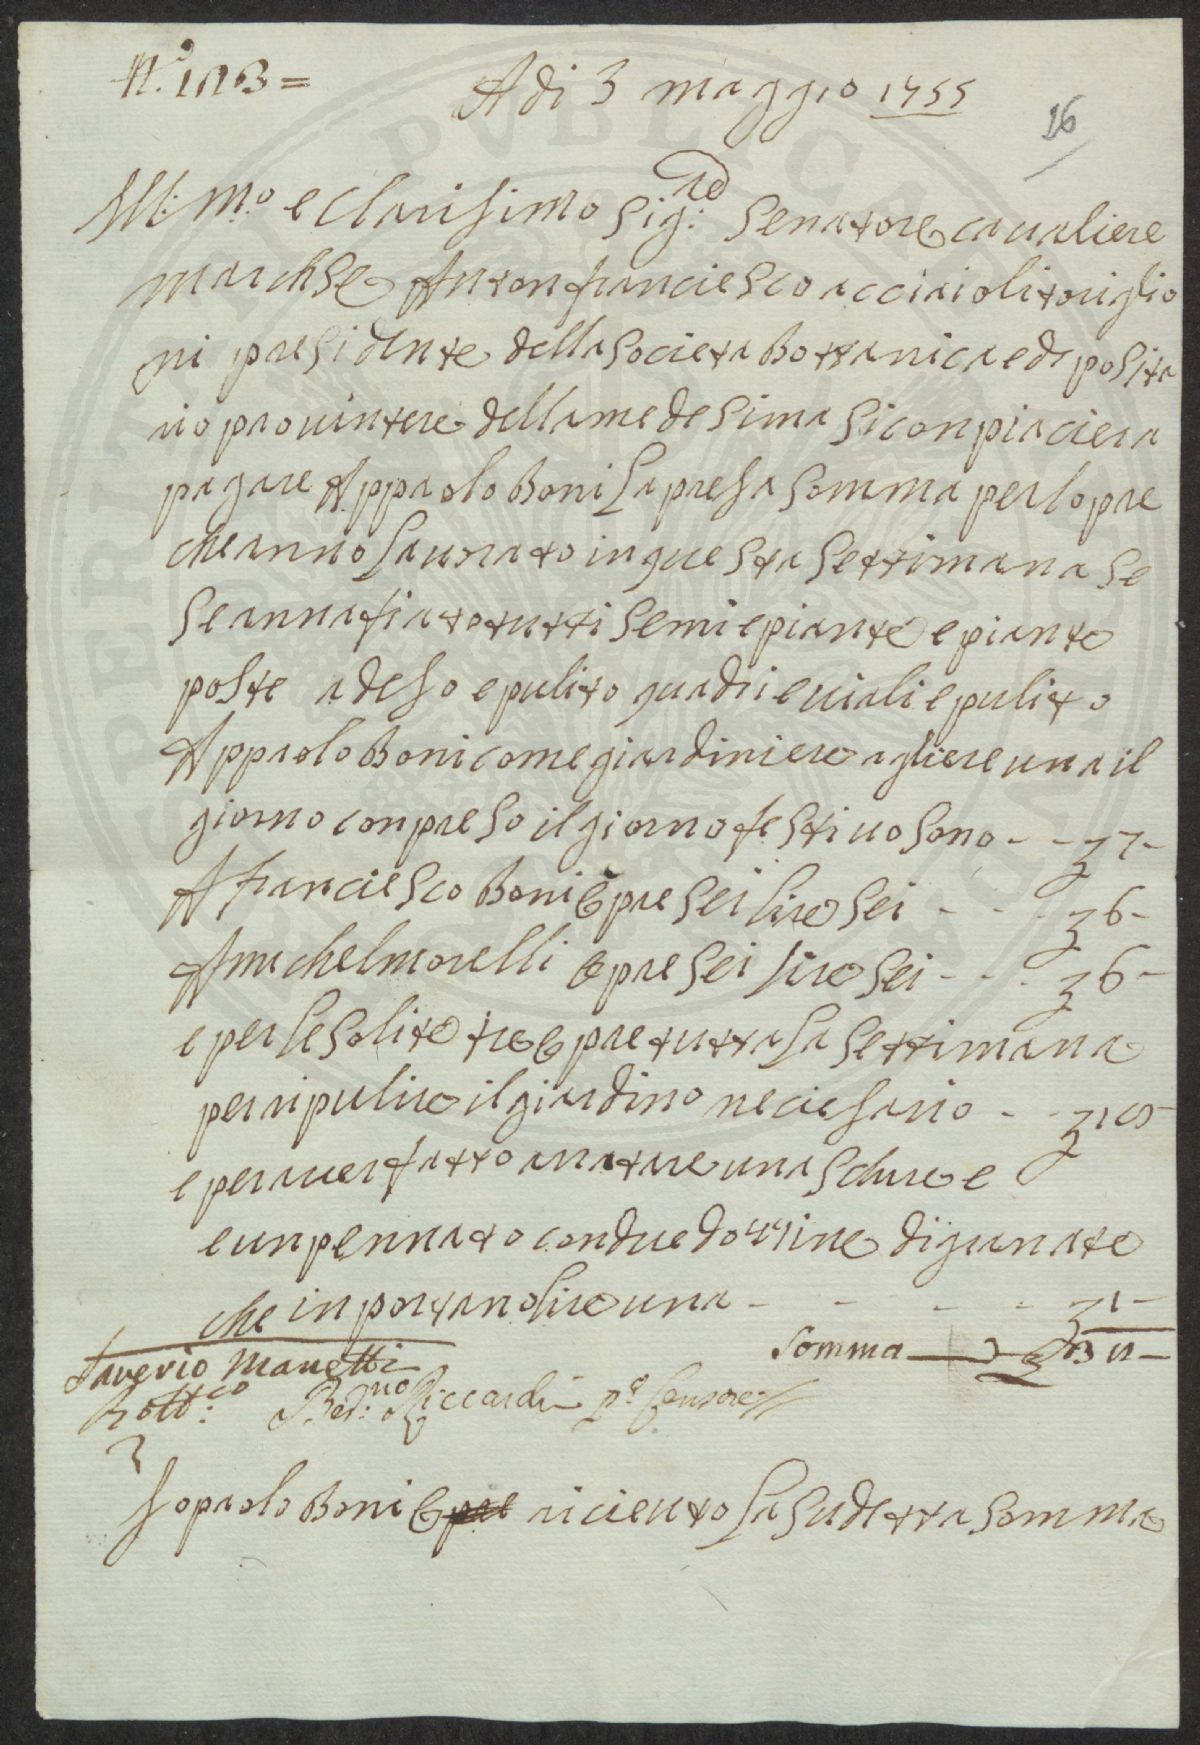 N.º 103 =
A di 3 maggio 1755
16
Ill:mo e Clarisimo Sig:re Senatore cavaliere
marchse Anton franciesco acciaioli toriglio
ni presidente della Societa Bottanica e deposita
rio
della medesima si conpiaciera
pagare Appaolo Boni la presa somma per lopre
che anno lavorato in questa settimana se
se annafiato tutti semi e piante e piante
poste adeso e pulito quadri e viali e pulito
Appaolo Boni come giardiniere a gliere una il
giorno conpreso il giorno festivo sono - - 7 -
A franciesco Boni 6 pre sei lire sei - - - 6 -
A michel morelli 6 pre sei lire sei - - - 6 -
e per le solite tre 6 pre tutta la settimana
per ripulire il giardino neciesario - -
e per aver fatto arrotare una schure e
e un pennato con due dozzine di granate
che inportano lire una - - - - 1 -
Somma
Saverio Manetti
Bott:co Ber:no Riccardi p.º Censore
Io paolo Boni 6 pre riceuto la sudetta somma